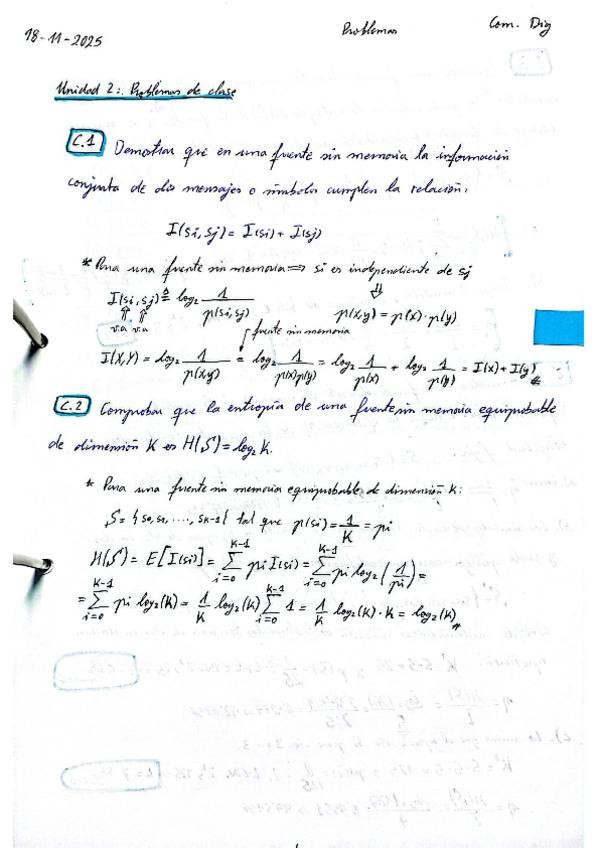 18-11-2025 Problemas Com. Dig
Unidad 2: Problemas de clase
C.1 Demostrar que en una fuente sin memoria la información
conjunta de dos mensajes o símbolos cumplen la relación:
I(si, sj) = I(si) + I(sj)
* Para una fuente sin memoria ⟹ si es independiente de sj
I(si, sj) ≜ log₂ 1/p(si, sj) ⇓ p(x,y) = p(x)·p(y)
v.a v.a fuente sin memoria
I(X,Y) = log₂ 1/p(x,y) = log₂ 1/p(x)p(y) = log₂ 1/p(x) + log₂ 1/p(y) = I(x) + I(y)
C.2 Comprobar que la entropía de una fuente sin memoria equiprobable
de dimensión K es H(S) = log₂ K.
* Para una fuente sin memoria equiprobable de dimensión K:
S = { s0, s1, ..., sK-1 } tal que p(si) = 1/K = pi
H(S) = E[I(si)] = ∑_{i=0}^{K-1} pi I(si) = ∑_{i=0}^{K-1} pi log₂ (1/pi) =
= ∑_{i=0}^{K-1} pi log₂(K) = 1/K log₂(K) ∑_{i=0}^{K-1} 1 = 1/K log₂(K) · K = log₂(K)